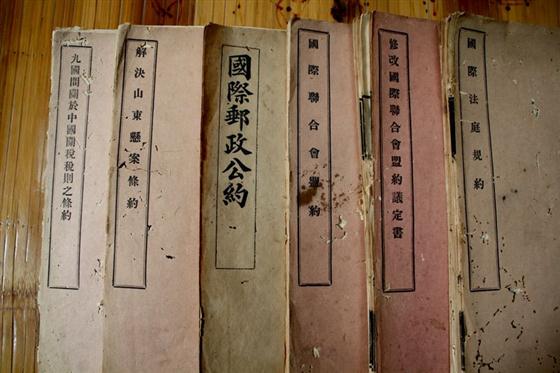 九國間關於中國關稅稅則之條約
解決山東懸案條約
國際郵政公約
國際聯合會盟約
修改國際聯合會盟約議定書
國際法庭規約